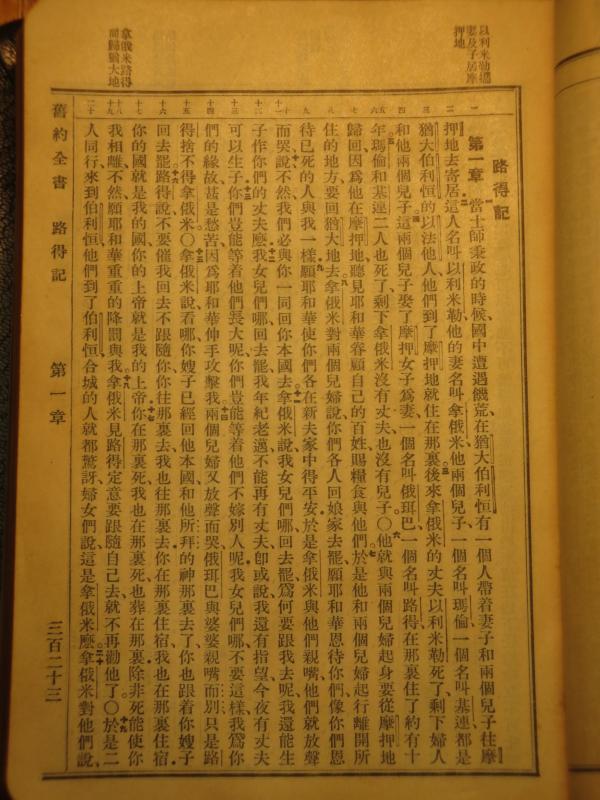 以利米勒攜
妻及子居摩
押地
拿俄米路得
歸猶大地
路得記
第一章 當士師秉政的時候、國中遭遇饑荒、在猶大伯利恒有一個人帶着妻子和兩個兒子往摩
押地去寄居這人名叫以利米勒他的妻名叫拿俄米他兩個兒子、一個名叫瑪倫一個名叫基連都是
猶大伯利恒的以法他人他們到了摩押地就住在那裏後來拿俄米的丈夫以利米勒死了剩下婦人
和他兩個兒子這兩個兒子娶了摩押女子爲妻一個名叫俄珥巴一個名叫路得在那裏住了約有十
年瑪倫和基連二人也死了剩下拿俄米沒有丈夫也沒有兒子〇他就與兩個兒婦起身要從摩押地
歸回因爲他在摩押地聽見耶和華眷顧自己的百姓賜糧食與他們於是他和兩個兒婦起行離開所
住的地方要回猶大地去拿俄米對兩個兒婦說你們各人回娘家去罷願耶和華恩待你們像你們恩
待已死的人與我一樣願耶和華使你們各在新夫家中得平安於是拿俄米與他們親嘴他們就放聲
而哭說不然我們必與你一同回你本國去拿俄米說我女兒們哪回去罷爲何要跟我去呢我還能生
子作你們的丈夫麽我女兒們哪回去罷我年紀老邁不能再有丈夫卽或說我還有指望今夜有丈夫
可以生子你們豈能等着他們長大呢你們豈能等着他們不嫁別人呢我女兒們哪不要這樣我爲你
們的緣故甚是愁苦因爲耶和華伸手攻擊我兩個兒婦又放聲而哭俄珥巴與婆婆親嘴而別只是路
得捨不得拿俄米〇拿俄米說看哪你嫂子已經回他本國和他所拜的神那裏去了你也跟着你嫂子
回去罷路得說不要催我回去不跟隨你你往那裏去我也往那裏去你在那裏住宿我也在那裏住宿
你的國就是我的國你的上帝就是我的上帝你在那裏死我也在那裏死也葬在那裏除非死能使你
我相離不然願耶和華重重的降罰與我拿俄米見路得定意要跟隨自己去就不再勸他了〇於是二
人同行來到伯利恒他們到了伯利恒合城的人就都驚訝婦女們說這是拿俄米麽拿俄米對他們說
舊約全書 路得記 第一章 三百二十三